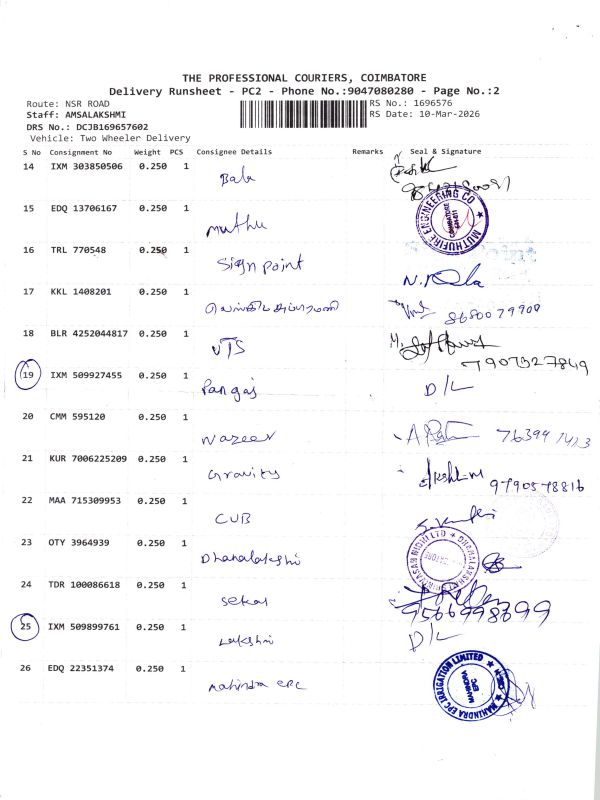 THE PROFESSIONAL COURIERS, COIMBATORE
Delivery Runsheet - PC2 - Phone No.:9047080280 - Page No.:2
Route: NSR ROAD
RS No.: 1696576
Staff: AMSALAKSHMI
RS Date: 10-Mar-2026
DRS No.: DCJB169657602
Vehicle: Two Wheeler Delivery
S No Consignment No Weight PCS Consignee Details Remarks Seal & Signature
14 IXM 303850506 0.250 1 Bala
15 EDQ 13706167 0.250 1 Muthu MUTHUFIRE ENGINEERING CO
16 TRL 770548 0.250 1 Sign point
17 KKL 1408201 0.250 1 8680079900
18 BLR 4252044817 0.250 1 UTS 7907327849
19 IXM 509927455 0.250 1 Pangaj D/L
20 CMM 595120 0.250 1 Nazeer
21 KUR 7006225209 0.250 1 Gravity 9790578816
22 MAA 715309953 0.250 1 CUB
23 OTY 3964939 0.250 1 Dhanalakshi
24 TDR 100086618 0.250 1 Sekar 9566998699
25 IXM 509899761 0.250 1 Lakshmi D/L
26 EDQ 22351374 0.250 1 Mahindra EPC MAHINDRA EPC IRRIGATION LIMITED